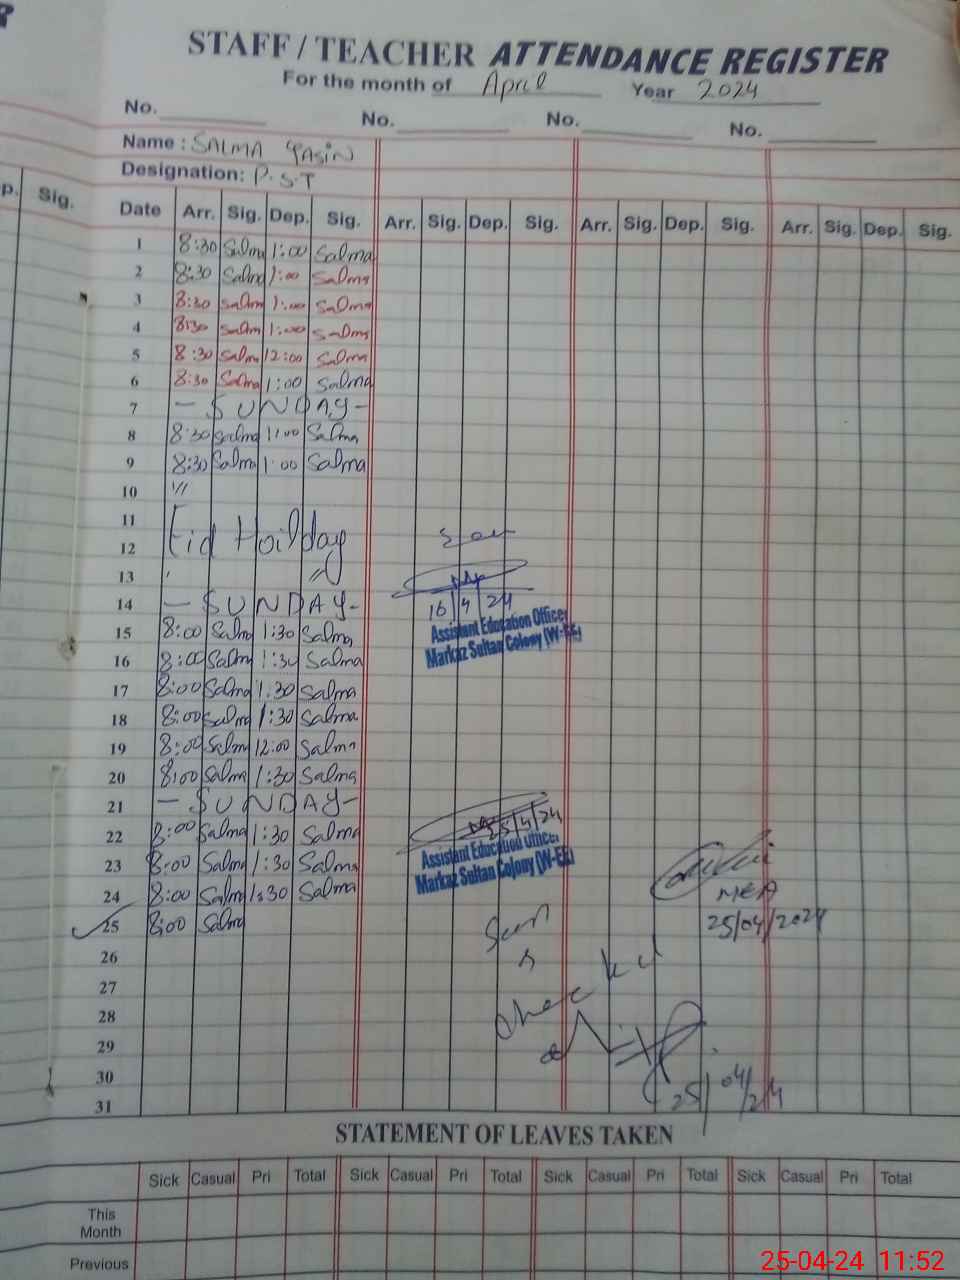 STAFF / TEACHER ATTENDANCE REGISTER
For the month of April Year 2024
No. No. No. No.
Name : SALMA YASIN
Designation: P.S.T
p. Sig. Date Arr. Sig. Dep. Sig. Arr. Sig. Dep. Sig. Arr. Sig. Dep. Sig. Arr. Sig. Dep. Sig.
1 8:30 Salma 1:00 Salma
2 8:30 Salma 1:00 Salma
3 8:30 Salma 1:00 Salma
4 8:30 Salma 1:00 Salma
5 8:30 Salma 12:00 Salma
6 8:30 Salma 1:00 Salma
7 - SUNDAY -
8 8:30 Salma 1:00 Salma
9 8:30 Salma 1:00 Salma
10 "
11
12 Eid Hoilday
13 "
14 - SUNDAY -
16/4/24
15 8:00 Salma 1:30 Salma
Assistant Education Officer
Markaz Sultan Colony (W-EE)
16 8:00 Salma 1:30 Salma
17 8:00 Salma 1:30 Salma
18 8:00 Salma 1:30 Salma
19 8:00 Salma 12:00 Salma
20 8:00 Salma 1:30 Salma
21 - SUNDAY -
25/4/24
22 8:00 Salma 1:30 Salma
Assistant Education Officer
Markaz Sultan Colony (W-EE)
23 8:00 Salma 1:30 Salma
24 8:00 Salma 1:30 Salma
MEA
25 8:00 Salma
25/04/2024
26
27
28
29
30
25/04/24
31
STATEMENT OF LEAVES TAKEN
Sick Casual Pri Total Sick Casual Pri Total Sick Casual Pri Total Sick Casual Pri Total
This
Month
Previous
25-04-24 11:52